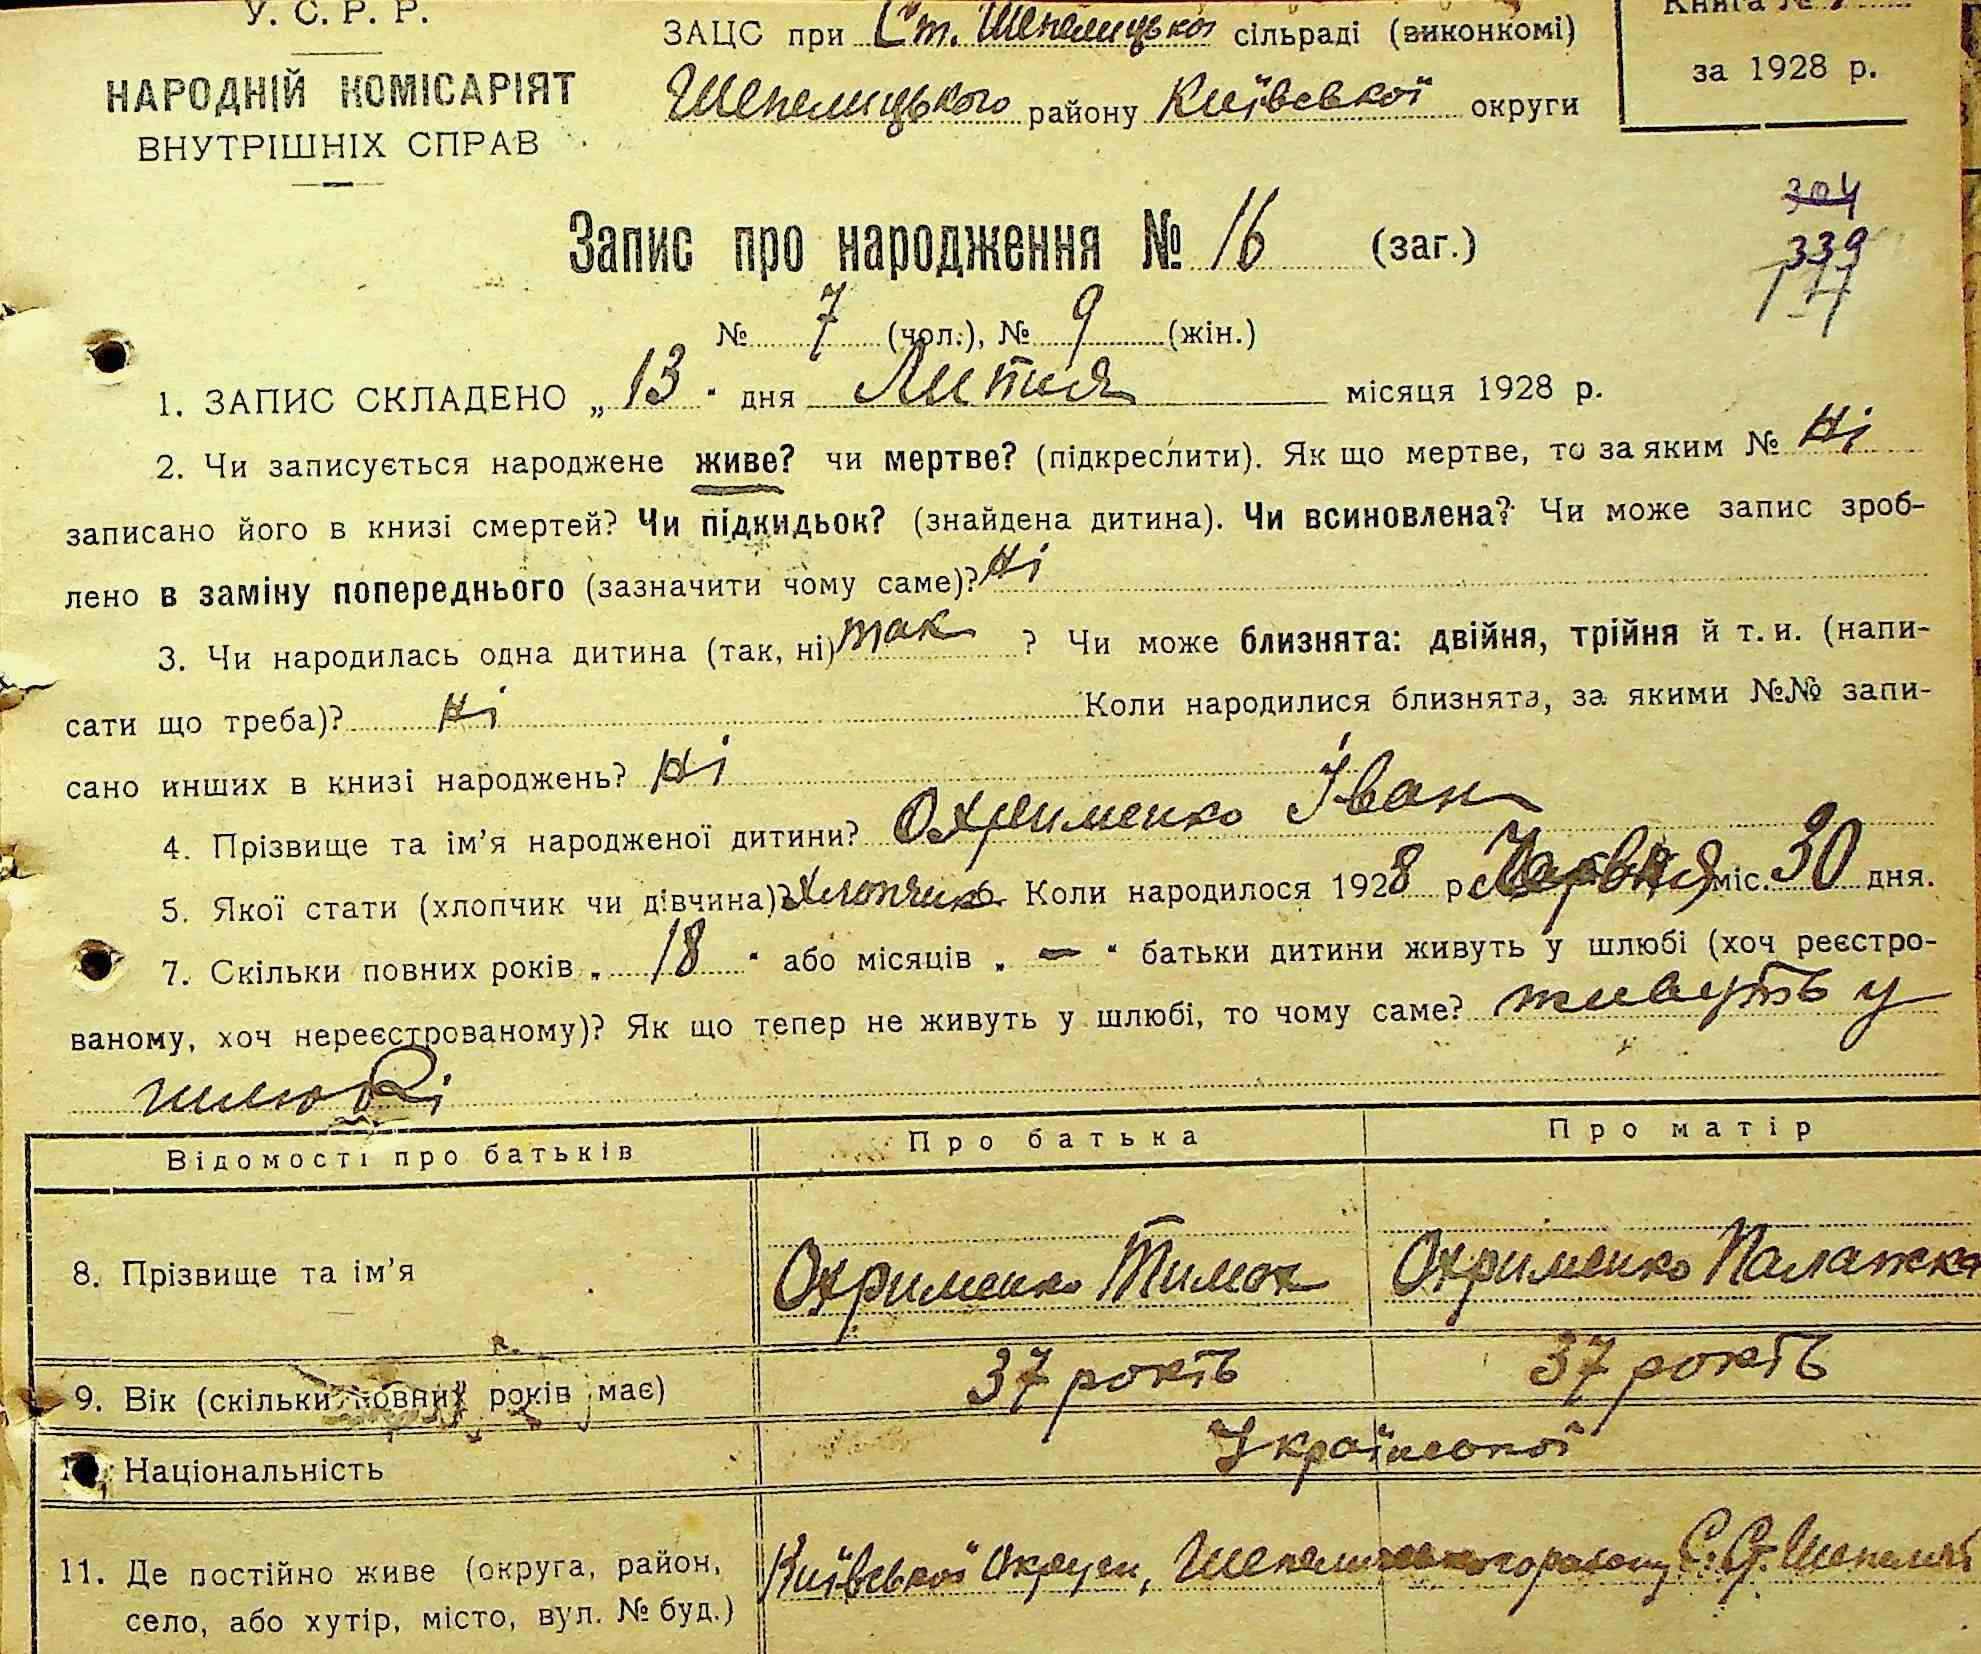 У. С. Р. Р.
НАРОДНІЙ КОМІСАРІЯТ
ВНУТРІШНІХ СПРАВ
ЗАЦС при Ст. Шепелицької сільраді (виконкомі)
Шепелицького району Київської округи
Книга №
за 1928 р.
304
339
Запис про народження № 16 (заг.)
№ 7 (чол.), № 9 (жін.)
1. ЗАПИС СКЛАДЕНО „ 13 " дня Липня місяця 1928 р.
2. Чи записується народжене живе? чи мертве? (підкреслити). Як що мертве, то за яким № Ні
записано його в книзі смертей? Чи підкидьок? (знайдена дитина). Чи всиновлена? Чи може запис зроб-
лено в заміну попереднього (зазначити чому саме)? Ні
3. Чи народилась одна дитина (так, ні) так ? Чи може близнята: двійня, трійня й т. и. (напи-
сати що треба)? Ні Коли народилися близнята, за якими №№ запи-
сано инших в книзі народжень? Ні
4. Прізвище та ім'я народженої дитини? Охрименко Іван
5. Якої стати (хлопчик чи дівчина)? Хлопчик Коли народилося 1928 р. Червня міс. 30 дня.
7. Скільки повних років „ 18 " або місяців „ — " батьки дитини живуть у шлюбі (хоч реєстро-
ваному, хоч нереєстрованому)? Як що тепер не живуть у шлюбі, то чому саме? живуть у
шлюбі
Відомості про батьків Про батька Про матір
8. Прізвище та ім'я Охрименко Тимох Охрименко Палажка
9. Вік (скільки повних років має) 37 років 37 років
Національність Української
11. Де постійно живе (округа, район, Київської Округи, Шепелицького району С. Ст. Шепеличі
село, або хутір, місто, вул. № буд.)